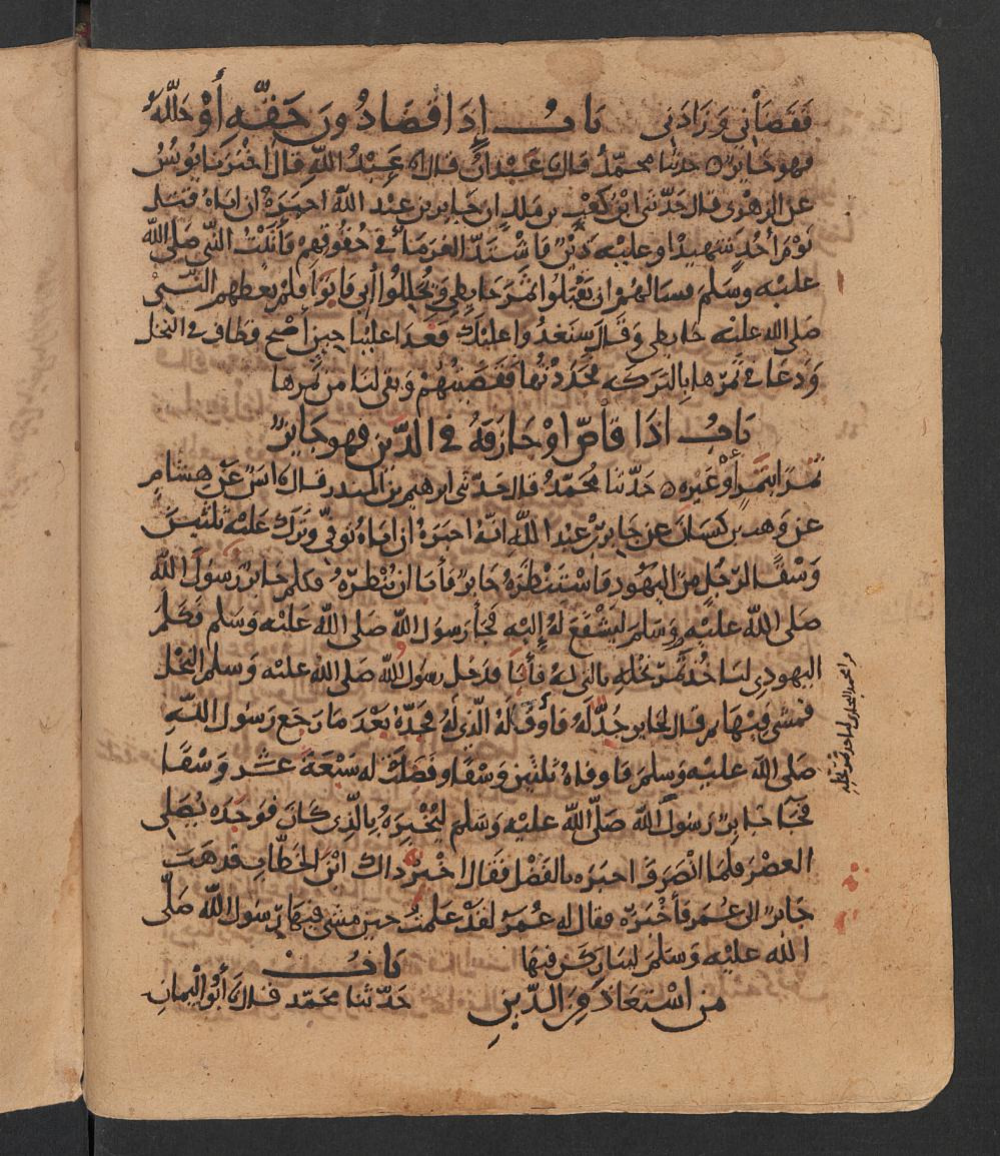 فَقَضَانِي وَزَادَنِي بَابُ إِذَا قَضَا دُونَ حَقِّهِ أَوْ حَلَّلَهُ
فهو جَايزٌ ٥ حدثنا محمّدٌ قال ٮا عَبْدانُ قال ٮا عَبْدُ اللهِ قال اخْبَرَنا يُونُسُ
عن الزهْرِي قال حَدَّثَني ابْن كَعْبِ بن ملك ان جَابر بن عَبْد الله اخبَرَهُ ان اباهُ قتل
يَوْمَ أُحُدٍ شَهِيدًا وعليْه دَيْنٌ فاشْتَدَّ الغرَمَاُ في حُقُوقِهِمْ فأتَيْتُ النَّبيَّ صَلى الله
عليْه وسَلمَ فسالهُمْ ان يَقْبَلُوا ثمَرَ حَايطِي وَيُحَلِلُوا أبي فابَوْا فلمْ يعطهم النَّبيّ
صَلى الله عليْه حَايطي وَقَالَ سَنَغدُوا عليْكَ فغدَا عليْنا حِينَ أصْبح فطاف في النخل
وَدَعَا في ثمَرِهَا بالبَرَكَه فجَدَدْتُهَا فقَضَيْتُهُمْ وَبقى لنَا من ثمرها
بَابُ اذَا قاصَّ اوْ جَازفَهُ في الدَّيْن فهو جَايزٌ
تمْرًا بتَمْرٍ أوْ غَيْرِهِ ٥ حَدَّثنا مُحَمّدٌ قال حَدثني ابرهيم بن المنذر قال ٮا انسٌ عَنْ هشامٍ
عن وَهب بن كيسَان عن جَابر بْن عبْد اللهِ انّهُ اخبرَهُ ان اباهُ توفيّ وَتَرَكَ عَليْهِ ثلثينَ
وَسْقًا لرَجُلٍ منَ اليَهُود فاسْتَنظَرَهُ جَابرٌ فأبَا ان يُنْظِرَهُ فكلم جَابرٌ رَسُولَ الله
صَلى الله عليْه وَسَلم ليَشْفَعَ لهُ إليْه فجَا رَسولُ الله صَلى الله عَليْه وَسَلم فكَلَّمَ
اليهودي ليَاخُذ ثمَرَ نخْلِهِ بالتي لهُ فأبَا فدَخل رسولُ الله صَلى الله عليْه وَسلم النخْل
فمشى فيْهَا ثم قال لجَابر جُدَّ لَهُ فأوْفِ لَهُ الّذي لَهُ فجَدَّهُ بَعْدَ مَا رَجَعَ رَسُول اللهِ
صَلى الله عليْهِ وَسَلمَ فاوفاهُ ثلثينَ وَسْقًا وفَضلَتْ له سَبْعَةَ عشَرَ وَسْقًا
فجَآ جَابرٌ رَسُولَ اللهِ صَلَّى اللهِ عليْه وَسَلم ليُخْبِرَهُ بالَّذِي كانَ فوَجَدَه يُصَلي
العصْرَ فلمَا انْصَرَفَ اخبَرَه بالفَضْل فقَالَ اخْبِرْ ذاك ابْن الخطّابِ فذَهَبَ
جَابرٌ الى عُمَرَ فأخْبَرَهُ فقال له عُمَر لقدْ عَلمتُ حين مشى فيهَا رَسُول الله صَلَّى
الله عليْهِ وَسَلمَ ليُبَارَكَن فيهَا بَابُ
من اسْتَعَاذَ مِنَ الدَّيْنِ حَدّثنا محَمّد قال ٮا أبُو اليَمانِ